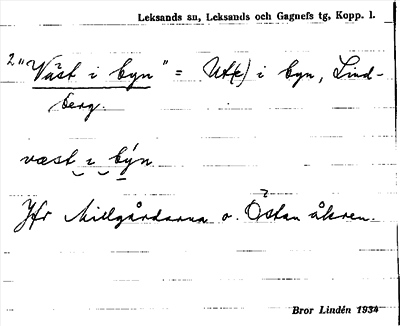 Leksands sn, Leksands och Gagnefs tg, Kopp. l.
2 "Väst i byn" = Ut(e) i byn, Lind-
berg.
væst i býn
Jfr Millgårdarna o. Östan åkren.
Bror Lindén 1934